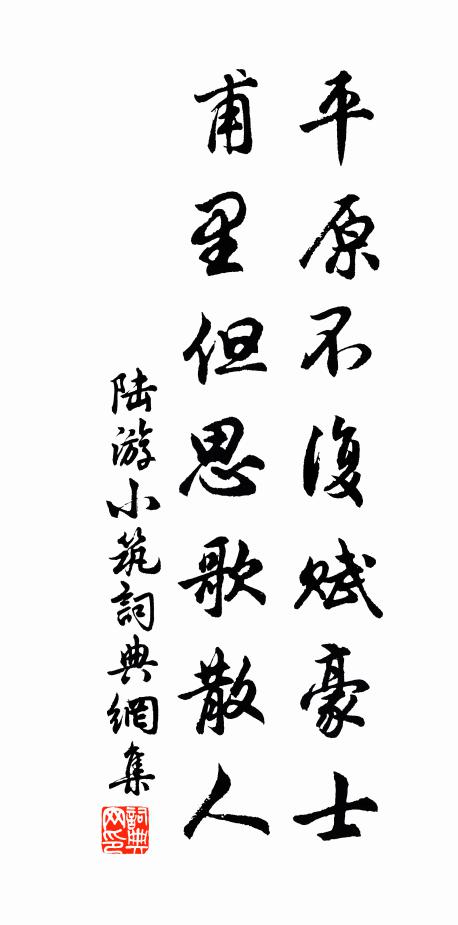 平原不復賦豪士
甫里但思歌散人
陆游小筑詞典網集
詞典网印